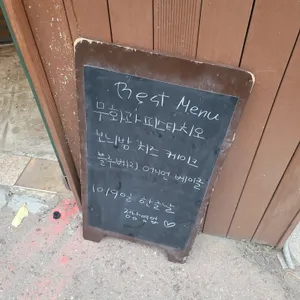 Best Menu
무화과 피스타치오
바나밤 치즈 케이크
블루베리 어니언 베이글
10/9일 한글날
정상영업